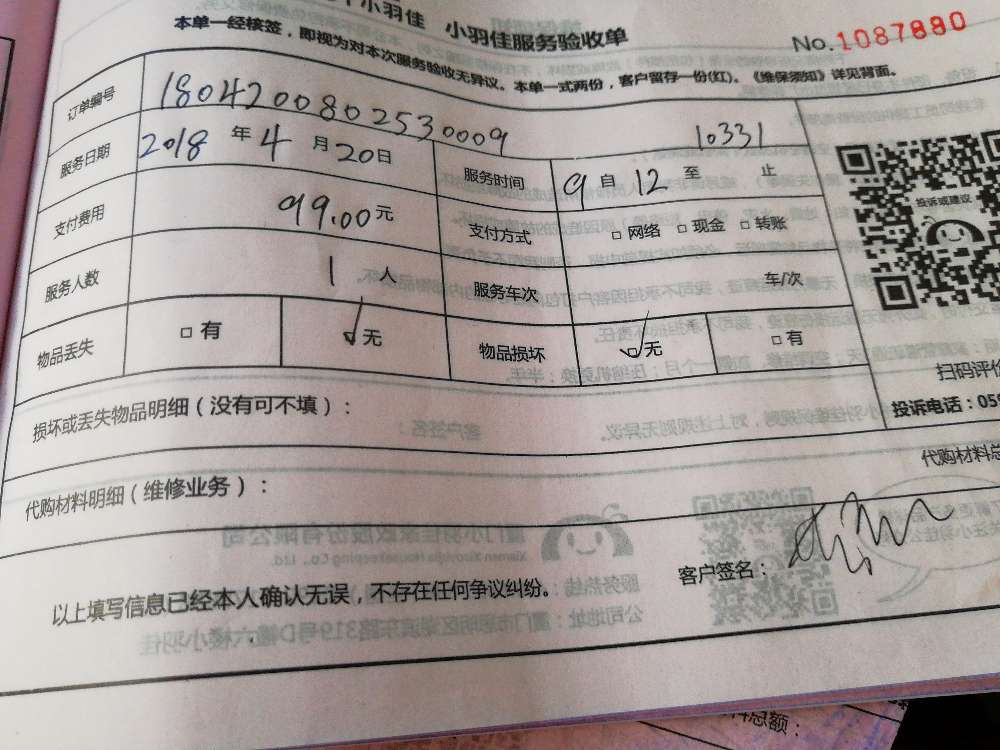 小羽佳 小羽佳服务验收单
No.1087880
本单一经核签，即视为对本次服务验收无异议。本单一式两份，客户留存一份(红)。《维保须知》详见背面。
订单编号 180420080253 0009 10331
服务日期 2018 年 4 月 20 日 服务时间 9 自 12 至 止
支付费用 99.00 元 支付方式 □ 网络 □ 现金 □ 转账
服务人数 1 人 服务车次 车/次
物品丢失 □ 有 ✓无 物品损坏 ✓无 □ 有
投诉或建议
扫码评价
投诉电话：059
损坏或丢失物品明细（没有可不填）：
代购材料明细（维修业务）： 代购材料总
以上填写信息已经本人确认无误，不存在任何争议纠纷。 客户签名：
总额：